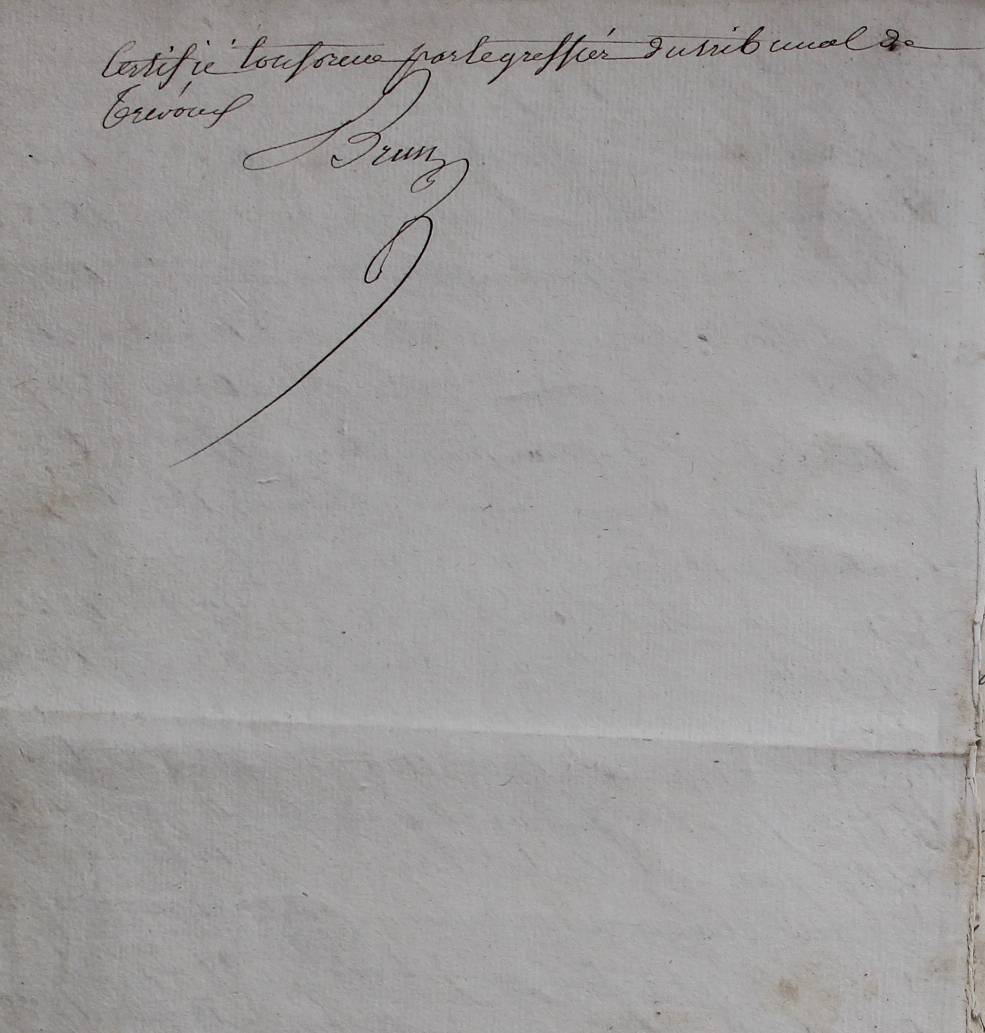 Certifié conforme par le greffier du tribunal de
Trévoux
Brun